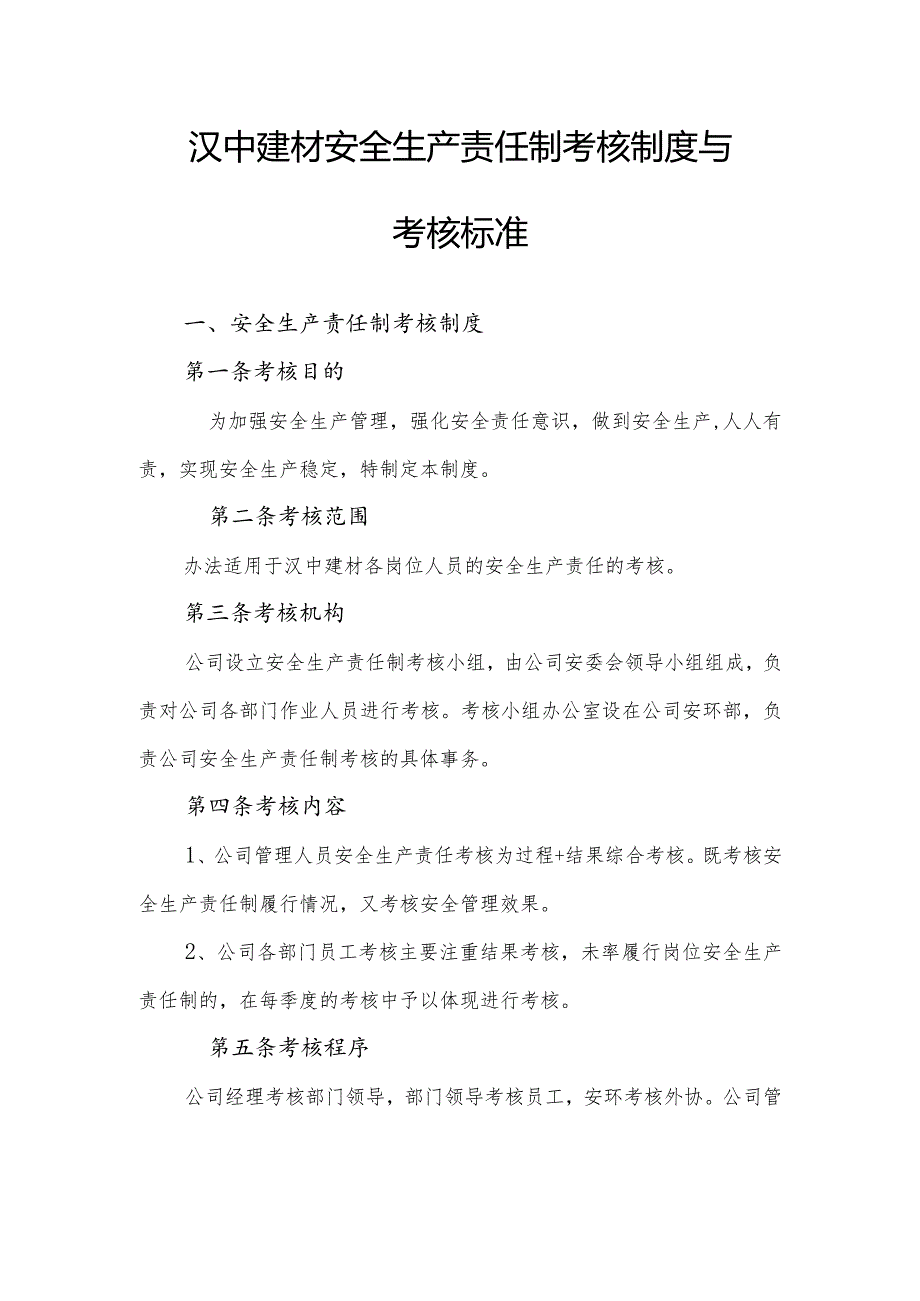 汉中建材安全生产责任制考核制度与
考核标准
一、安全生产责任制考核制度
第一条考核目的
为加强安全生产管理，强化安全责任意识，做到安全生产,人人有
责，实现安全生产稳定，特制定本制度。
第二条考核范围
办法适用于汉中建材各岗位人员的安全生产责任的考核。
第三条考核机构
公司设立安全生产责任制考核小组，由公司安委会领导小组组成，负
责对公司各部门作业人员进行考核。考核小组办公室设在公司安环部，负
责公司安全生产责任制考核的具体事务。
第四条考核内容
1、公司管理人员安全生产责任考核为过程+结果综合考核。既考核安
全生产责任制履行情况，又考核安全管理效果。
2、公司各部门员工考核主要注重结果考核，未率履行岗位安全生产
责任制的，在每季度的考核中予以体现进行考核。
第五条考核程序
公司经理考核部门领导，部门领导考核员工，安环考核外协。公司管